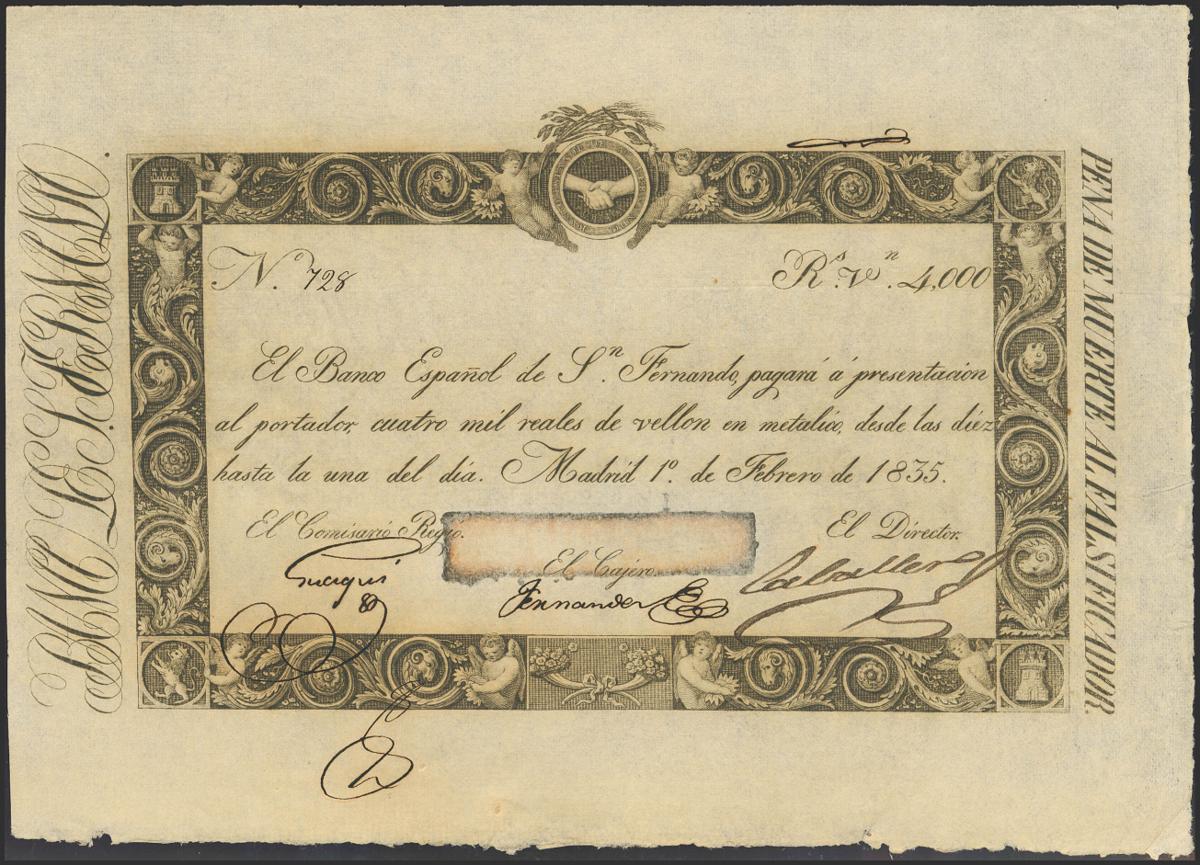 Nº. 728
Rˢ. Vⁿ. 4,000
El Banco Español de Sⁿ. Fernando, pagará á presentacion
al portador, cuatro mil reales de vellon en metalico, desde las diéz
hasta la una del día. Madrid 1º. de Febrero de 1835.
El Comisario Regio.
El Director.
El Cajero.
Guaqui
Fernandez
Caballero
PENA DE MUERTE AL FALSIFICADOR.